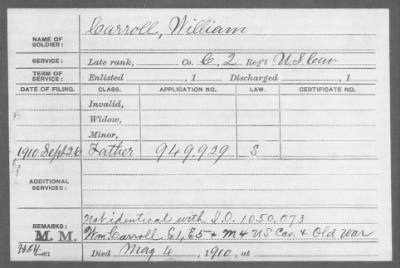 NAME OF SOLDIER: Carroll, William
SERVICE: Late rank, Co. C, 2 Reg't U.S. Cav
TERM OF SERVICE: Enlisted , 1 Discharged , 1
DATE OF FILING. CLASS. APPLICATION NO. LAW. CERTIFICATE NO.
Invalid,
Widow,
Minor,
1910 Sept 26 Father 949.929 S
ADDITIONAL SERVICES:
REMARKS: Not identical with S.O. 1050.073
M. M. Wm Carroll E1, E5 & M4 US Cav. & Old War
Died May 4, 1910, at